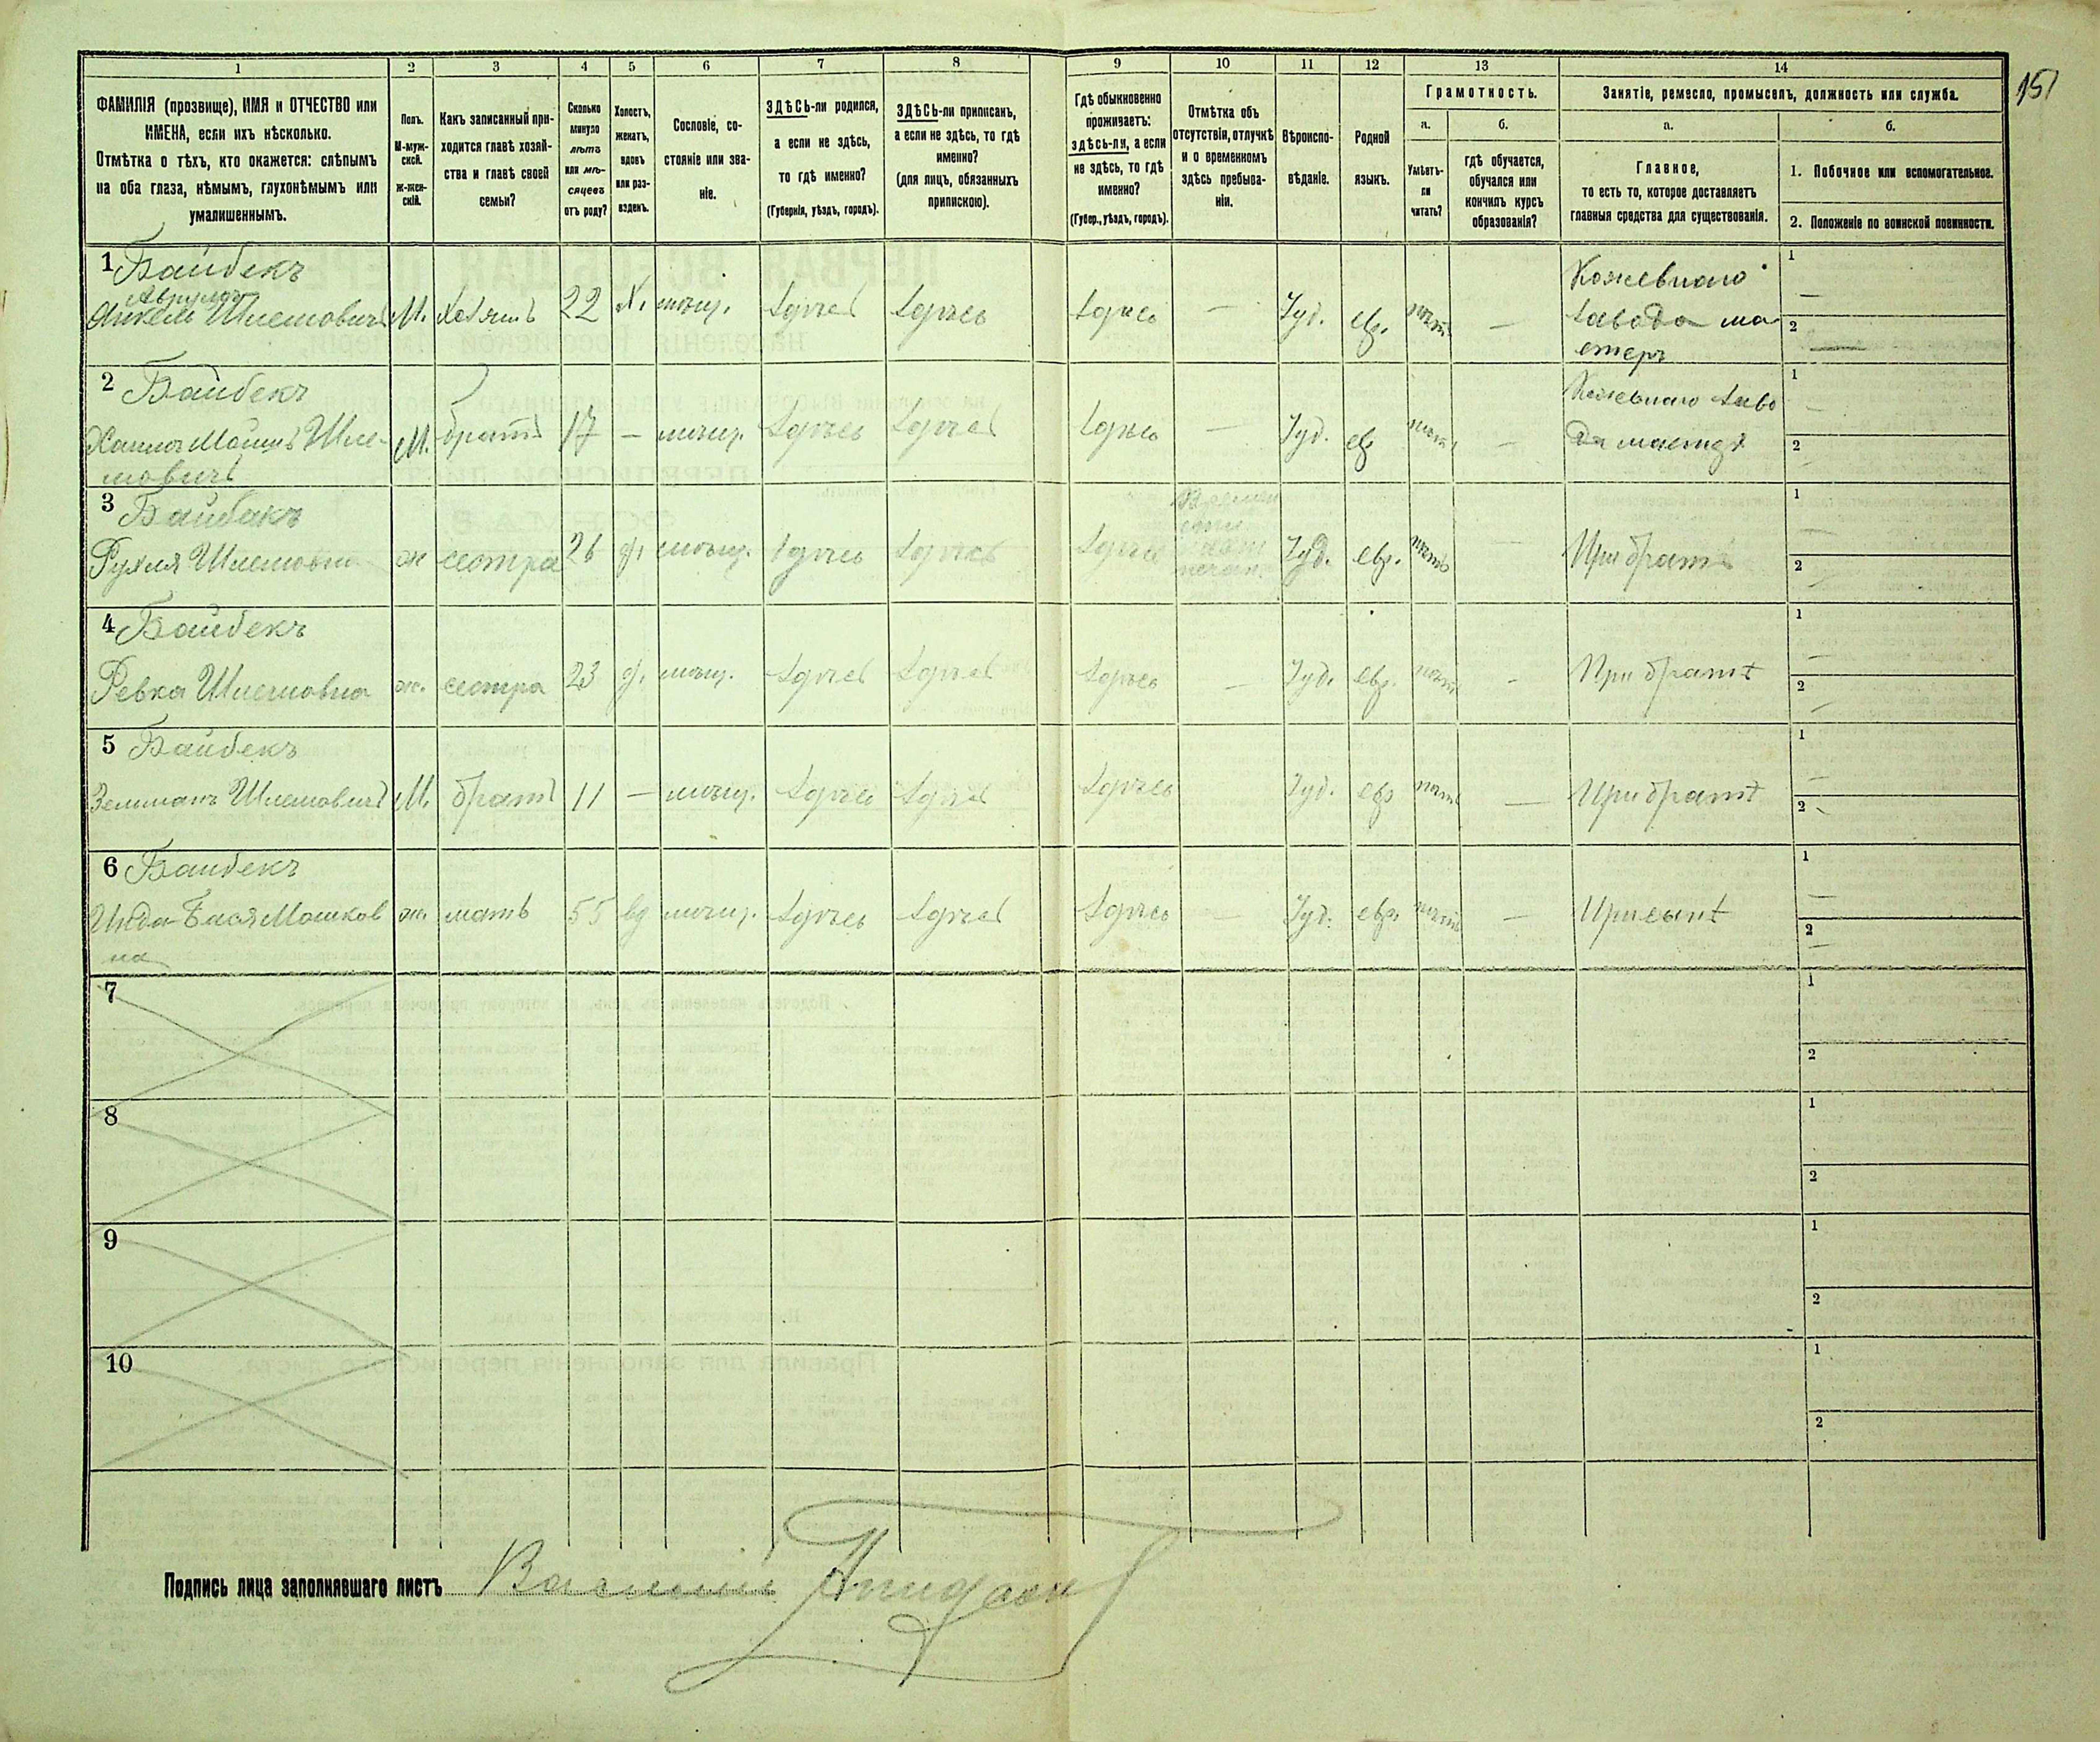 151
1 2 3 4 5 6 7 8 9 10 11 12 13 14
ФАМИЛІЯ (прозвище), ИМЯ и ОТЧЕСТВО или
ИМЕНА, если ихъ нѣсколько.
Отмѣтка о тѣхъ, кто окажется: слѣпымъ
на оба глаза, нѣмымъ, глухонѣмымъ или
умалишеннымъ.
Полъ.
М-муж-
ской.
Ж-жен-
скій.
Какъ записанный при-
ходится главѣ хозяй-
ства и главѣ своей
семьи?
Сколько
минуло
лѣтъ
или мѣ-
сяцевъ
отъ роду?
Холостъ,
женатъ,
вдовъ
или раз-
веденъ.
Сословіе, со-
стояніе или зва-
ніе.
ЗДѢСЬ-ли родился,
а если не здѣсь,
то гдѣ именно?
(Губернія, уѣздъ, городъ).
ЗДѢСЬ-ли приписанъ,
а если не здѣсь, то гдѣ
именно?
(для лицъ, обязанныхъ
припискою).
Гдѣ обыкновенно
проживаетъ:
здѣсь-ли, а если
не здѣсь, то гдѣ
именно?
(Губер., уѣздъ, городъ).
Отмѣтка объ
отсутствіи, отлучкѣ
и о временномъ
здѣсь пребыва-
ніи.
Вѣроиспо-
вѣданіе.
Родной
языкъ.
Грамотность.
а. б.
Умѣетъ-
ли
читать?
гдѣ обучается,
обучался или
кончилъ курсъ
образованія?
Занятіе, ремесло, промыселъ, должность или служба.
а. б.
Главное,
то есть то, которое доставляетъ
главныя средства для существованія.
1. Побочное или вспомогательное.
2. Положеніе по воинской повинности.
1 Байбекъ
Шлемовичъ М. хозяинъ 22 Х. мѣщ. здѣсь здѣсь здѣсь — Іуд. евр. нѣтъ — Кожевнаго
завода ма
стеръ
1 —
2 —
2 Байбекъ
Мошъ Шле-
мовичъ М. братъ 17 — мѣщ. здѣсь здѣсь здѣсь — Іуд. евр. нѣтъ — Кожевнаго заво
да
1 —
2
3 Байбакъ
Рухля Шлемовна ж сестра 26 д. мѣщ. здѣсь здѣсь здѣсь Іуд. евр. нѣтъ — При братѣ
1 —
2
4 Байбекъ
Ревка Шлемовна ж. сестра 23 д. мѣщ. здѣсь здѣсь здѣсь — Іуд. евр. нѣтъ — При братѣ
1 —
2
5 Байбекъ
Зельманъ Шлемовичъ М. братъ 11 — мѣщ. здѣсь здѣсь здѣсь Іуд. евр нѣтъ — При братѣ
1 —
2
6 Байбекъ
Бася Мошков
на ж. мать 55 вд мѣщ. здѣсь здѣсь здѣсь — Іуд. евр. нѣтъ — При сынѣ
1 —
2 —
7 1
2
8 1
2
9 1
2
10 1
2
Подпись лица заполнявшаго листъ Василій